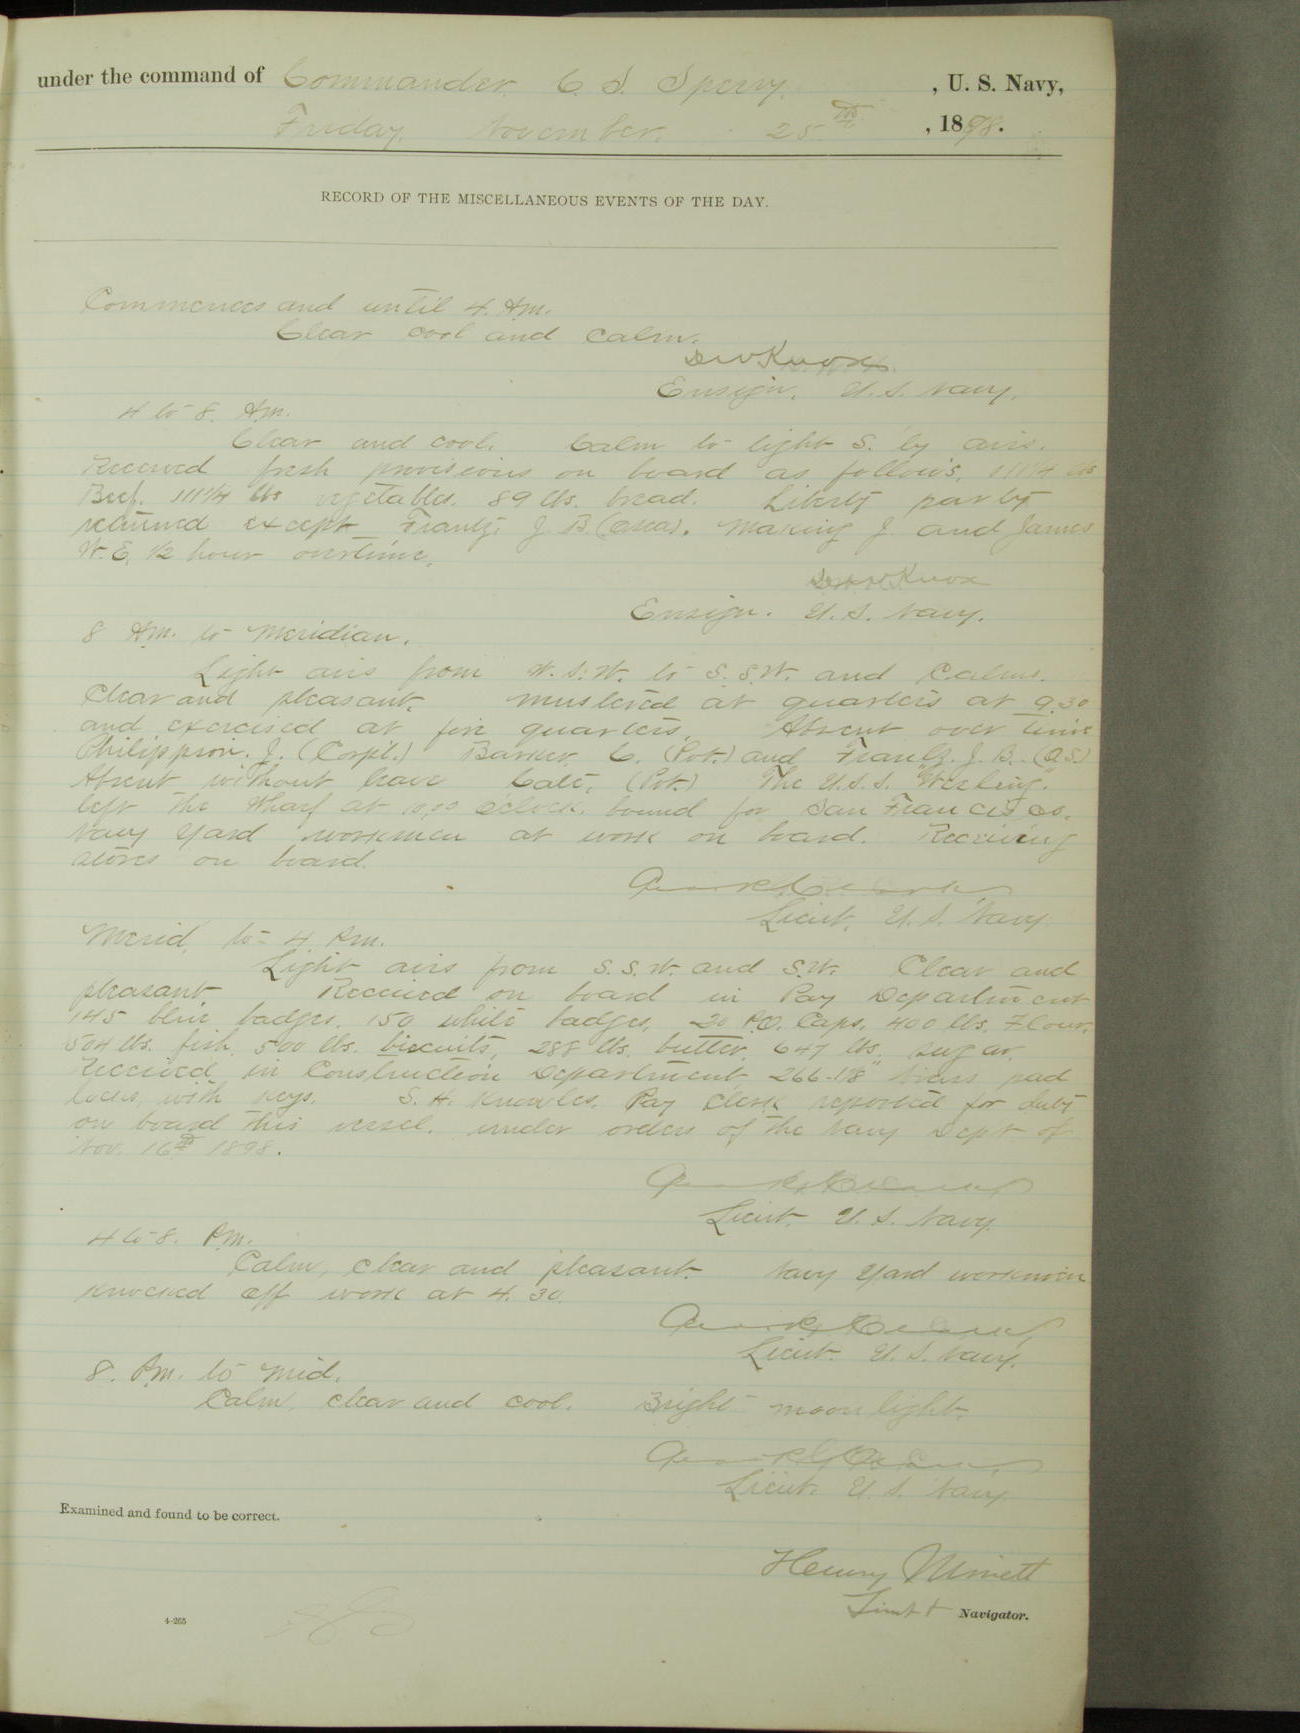 under the command of Commander C. S. Sperry, , U. S. Navy,
Friday November 25th , 1898.
RECORD OF THE MISCELLANEOUS EVENTS OF THE DAY.
Commences and until 4. Am.
Clear cool and calm.
DWKnox
Ensign. U.S. Navy.
4 to 8. Am.
Clear and cool. Calm to light S. by airs.
Received fresh provisions on board as follows. 111 1/4 lbs
Beef. 111 1/4 lbs vegetables. 89 lbs. bread. Liberty party
returned except Frantz. J. B. Making J. and James
W. E. 1/2 hour overtime.
DWKnox
Ensign. U.S. Navy.
8 Am. to Meridian.
Light airs from W.S.W. to S.S.W. and Calms.
Clear and pleasant. Mustered at quarters at 9.30
and exercised at fire quarters. Absent over time
Philippson. J. (Corpl.) Barker. C. (Pvt.) and Frantz. J. B. (O.S.)
Absent without leave Cate, (Pvt.) The U.S.S.
left the Wharf at o'clock. bound for San Francisco.
Navy Yard workmen at work on board. Receiving
stores on board.
Lieut. U.S. Navy
Merid. to 4 Pm.
Light airs from S.S.W. and S.W. Clear and
pleasant Received on board in Pay Department
145 blue badges. 150 white badges. 20 P.O. Caps. 400 lbs. Flour.
504 lbs. fish. 500 lbs. biscuits, 288 lbs. butter. 647 lbs. sugar.
Received in Construction Department 266-1 1/8" brass pad
locks, with keys. S. H. Knowles. Pay Clerk reported for duty
on board this vessel. under orders of the Navy Dept of
Nov. 16th 1898.
Lieut. U.S. Navy.
4 to 8. Pm.
Calm, clear and pleasant. Navy Yard workmen
knocked off work at 4.30.
Lieut. U.S. Navy.
8. Pm. to Mid.
Calm, clear and cool. Bright moonlight.
Lieut. U.S. Navy
Examined and found to be correct.
Henry Minett
Lieut Navigator.
4-265